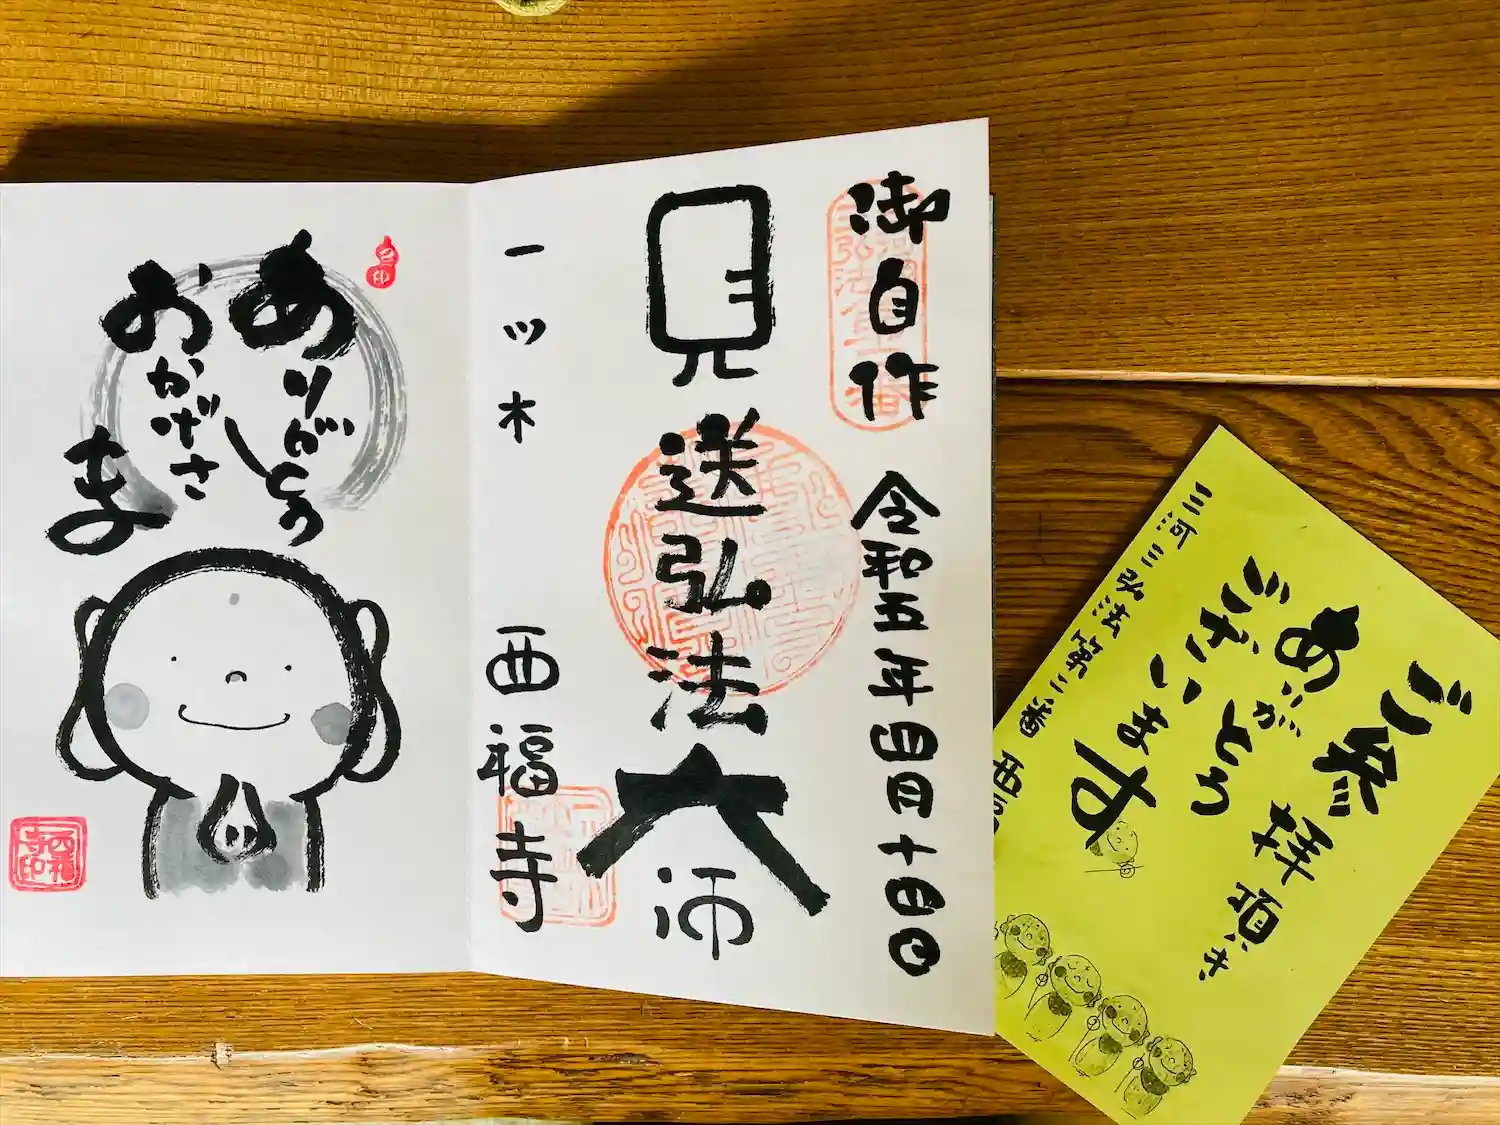 御自作 令和五年四月十四日
見送弘法大師
一ツ木 西福寺
ありがとう
おかげさま
西福寺印
ご参拝頂き
ありがとう
ございます
三河三弘法第二番 西